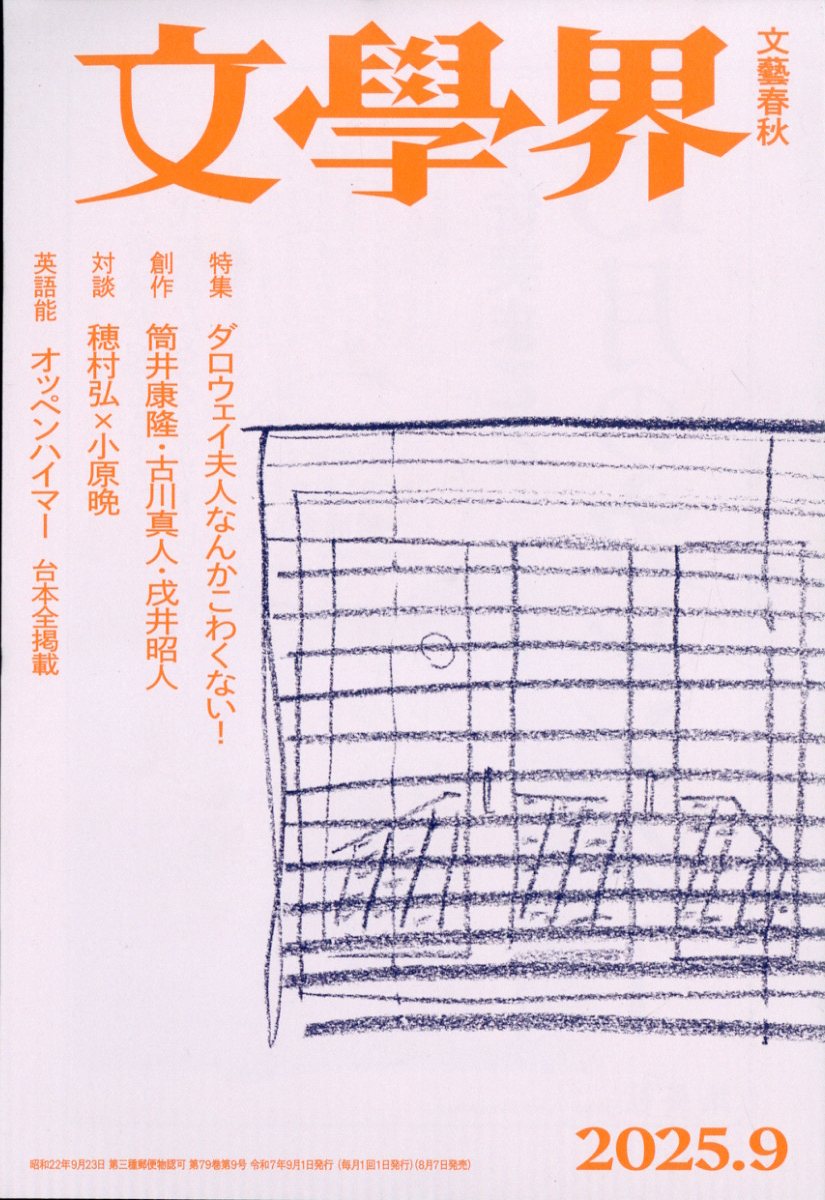 文學界
文藝春秋
特集 ダロウェイ夫人なんかこわくない！
創作 筒井康隆・古川真人・戌井昭人
対談 穂村弘×小原晩
英語能 オッペンハイマー 台本全掲載
2025.9
昭和22年9月23日 第三種郵便物認可 第79巻第9号 令和7年9月1日発行 (毎月1回1日発行)(8月7日発売)